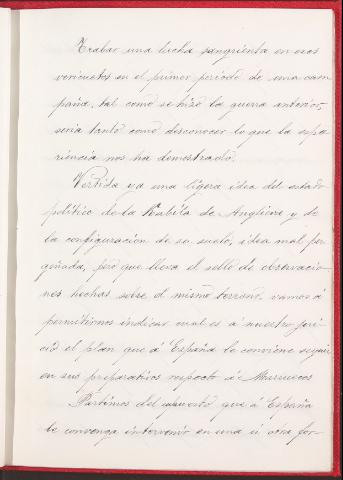 Trabar una lucha sangrienta en esos
vericuetos en el primer periodo de una cam
paña, tal como se hizo la guerra anterior,
seria tanto como desconocer lo que la espe
riencia nos ha demostrado.
Vertida ya una ligera idea del estado
politico de la Kabila de Anghera y de
la configuracion de su suelo, idea mal per
geñada, pero que lleva el sello de observacio
nes hechas sobre el mismo terreno, vamos á
permitirnos indicar cual es á nuestro jui
cio el plan que á España le conviene seguir
en sus preparativos respecto á Marruecos
Partimos del supuesto que á España
le convenga intervenir en una ú otra for-